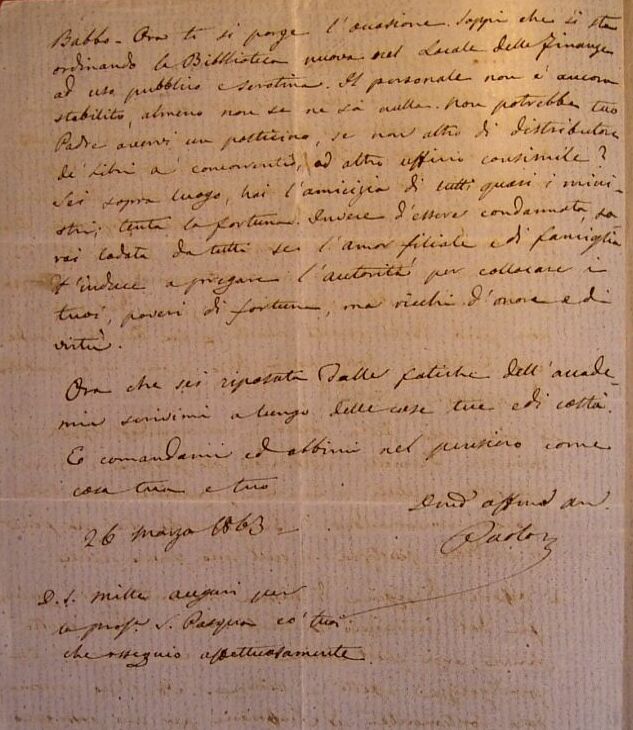 Babbo - Ora ti si porge l'occasione. Sappi che si sta
ordinando la Biblioteca nuova nel locale delle Finanze
ad uso pubblico e serotina. Il personale non è ancora
stabilito, almeno non se ne sà nulla. Non potrebbe tuo
Padre avervi un posticino, se non altro di distributore
de' libri a' concorrenti, od altro uffizio consimile?
Sei sopra luogo, hai l'amicizia di tutti quasi i mini-
stri; tenta la fortuna. Invece d'essere condannata, sa-
rai lodata da tutti se l'amor filiale e di famiglia
t'induce a pregare l'autorità per collocare i
tuoi, poveri di fortuna, ma ricchi d'onore e di
virtù.
Ora che sei riposata dalle fatiche dell'accade-
mia scrivimi a lungo delle cose tue e di costà.
E comandami ed abbimi nel pensiero come
cosa tua e tuo
affmo
26 marzo 1863 -
Paolo
P.S. Mille auguri per
la pross. S. Pasqua co' tuoi
che ossequio affettuosamente.